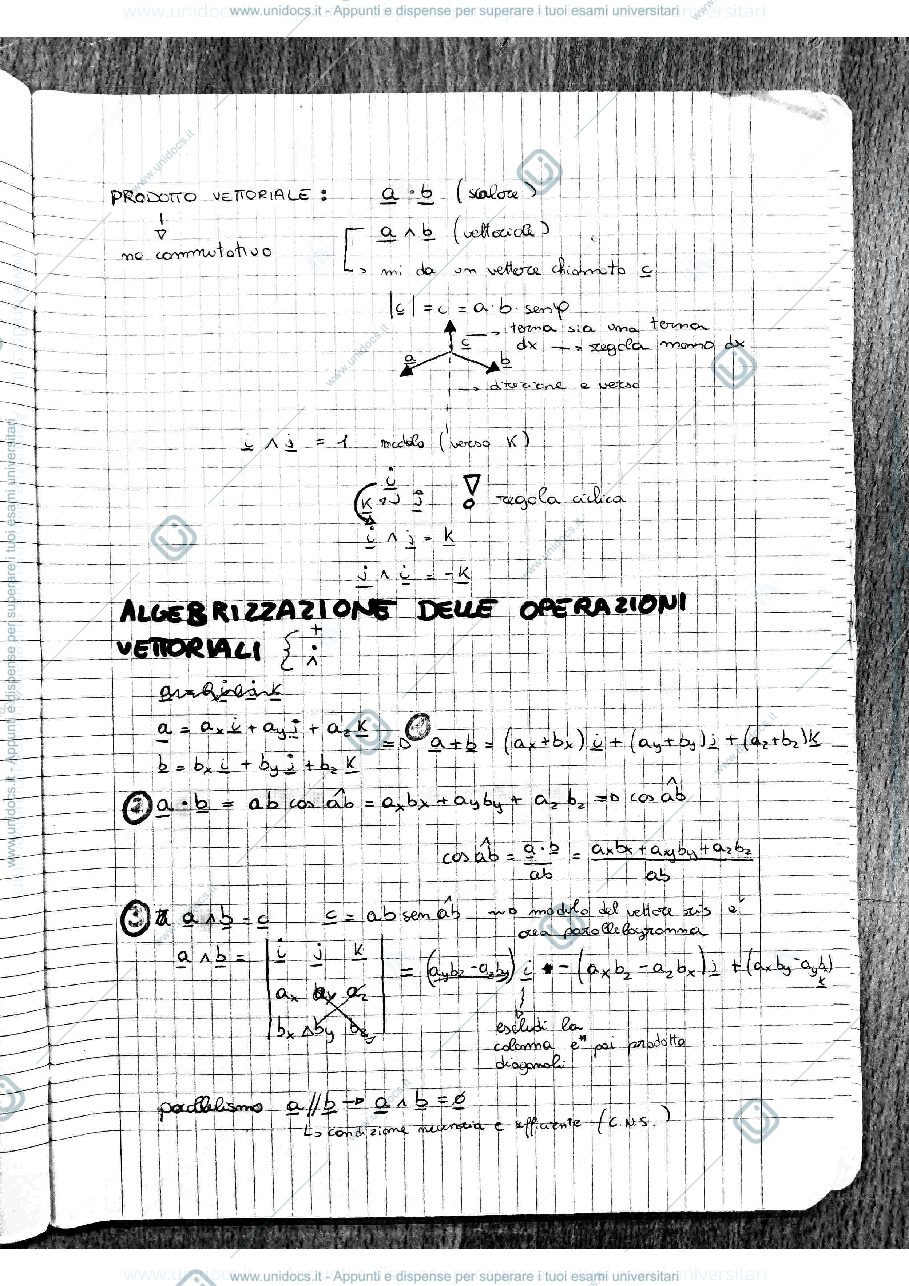 www.unidocs.it - Appunti e dispense per superare i tuoi esami universitari
PRODOTTO VETTORIALE : a · b (scalare)
no commutativo
a ∧ b (vettoriale)
↳ mi da un vettore chiamato c
|c| = c = a · b · senφ
c → terna sia una terna
dx → regola mano dx
a b
→ direzione e verso
i ∧ j = 1 modulo (verso K)
i
K j ! regola ciclica
i ∧ j = K
j ∧ i = -K
ALGEBRIZZAZIONE DELLE OPERAZIONI
VETTORIALI { + · ∧
a = ax i + ay j + az K
b = bx i + by j + bz K
⇒ ① a + b = (ax+bx) i + (ay+by) j + (az+bz) K
② a · b = ab cos âb = axbx + ayby + azbz ⇒ cos âb
cos âb = a · b / ab = axbx + ayby + azbz / ab
③ a ∧ b = c c = ab sen âb → modulo del vettore ris è
area parallelogramma
a ∧ b = | i j K | = (aybz - azby) i - (axbz - azbx) j + (axby - aybx) K
ax ay az
bx by bz
escludi la
colonna e poi prodotto
diagonali
parallelismo a // b → a ∧ b = 0
↳ condizione necessaria e sufficiente (C.N.S.)
www.unidocs.it - Appunti e dispense per superare i tuoi esami universitari